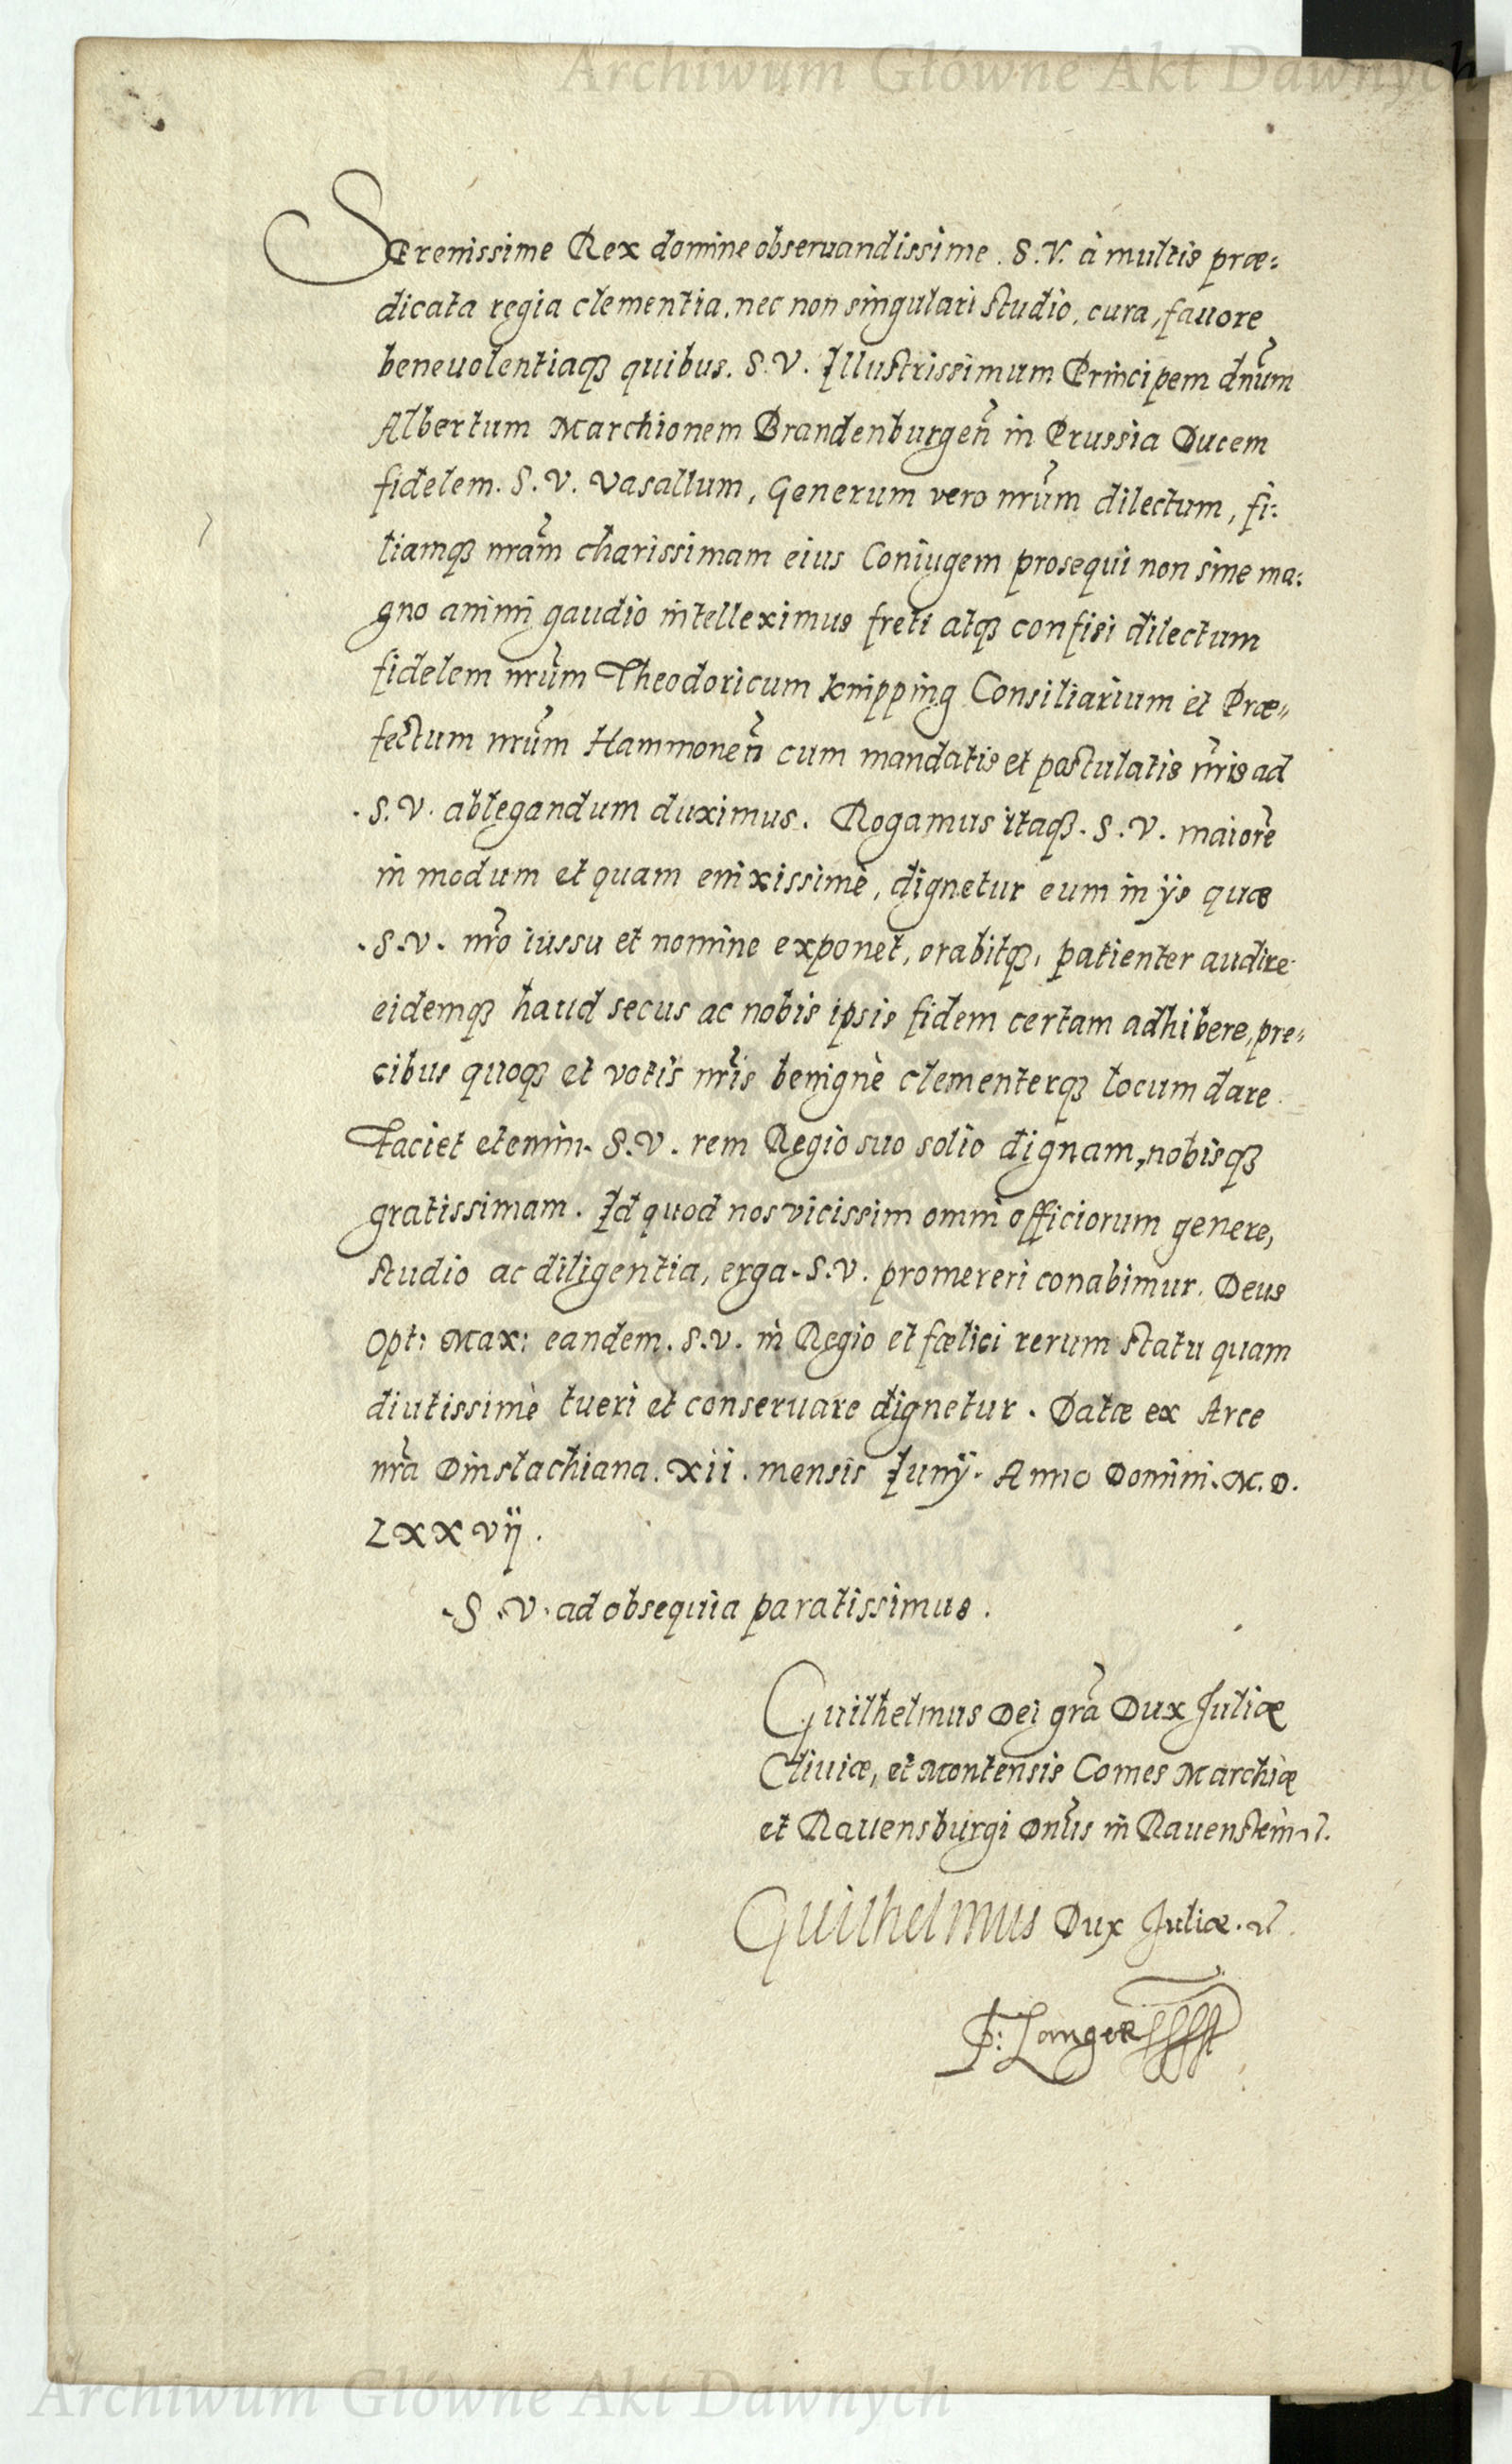 Archiwum Główne Akt Dawnych
Serenissime Rex domine obseruandissime . S.V. à multis præ:
dicata regia clementia, nec non singulari studio, cura, fauore
beneuolentiaqꝫ quibus. S.V. Illustrissimum Principem dnũm
Albertum Marchionem Brandenburgeñ in Prussia Ducem
fidelem. S.V. Vasallum, Generum vero nrũm dilectum, fi:
liamqꝫ nrãm charissimam eius Coniugem prosequi non sine ma:
gno animi gaudio intelleximus freti atqꝫ confisi dilectum
fidelem nrũm Theodoricum Knipping Consiliarium et Præ„
fectum nrũm Hammoneñ cum mandatis et postulatis nr̃is ad
. S.V. ablegandum duximus. Rogamus itaqꝫ. S.V. maiorẽ
in modum et quam enixissimè, dignetur eum in ijs quæ
. S.V. nr̃o iussu et nomine exponet, orabitqꝫ, patienter audire
eidemqꝫ haud secus ac nobis ipsis fidem certam adhibere, pre„
cibus quoqꝫ et votis nr̃is benignè clementerqꝫ locum dare.
Faciet etenim. S.V. rem Regio suo solio dignam, nobisqꝫ
gratissimam. Id quod nos vicissim omni officiorum genere,
studio ac diligentia, erga. S.V. promereri conabimur. Deus
Opt: Max: eandem. S.V. in Regio et fœlici rerum statu quam
diutissimè tueri et conseruare dignetur. Datæ ex Arce
nr̃a Dinslachiana. XII. mensis Junij. Anno Domini. M.D.
LXXVIj.
. S.V. ad obsequia paratissimus.
Guilhelmus Dei grã Dux Juliæ
Cliuiæ, et Montensis Comes Marchiæ
et Rauensburgi Dnũs in Rauenstein ꝛc.
Guilhelmus Dux Juliæ. ꝛc.
P: Langer
Archiwum Główne Akt Dawnych